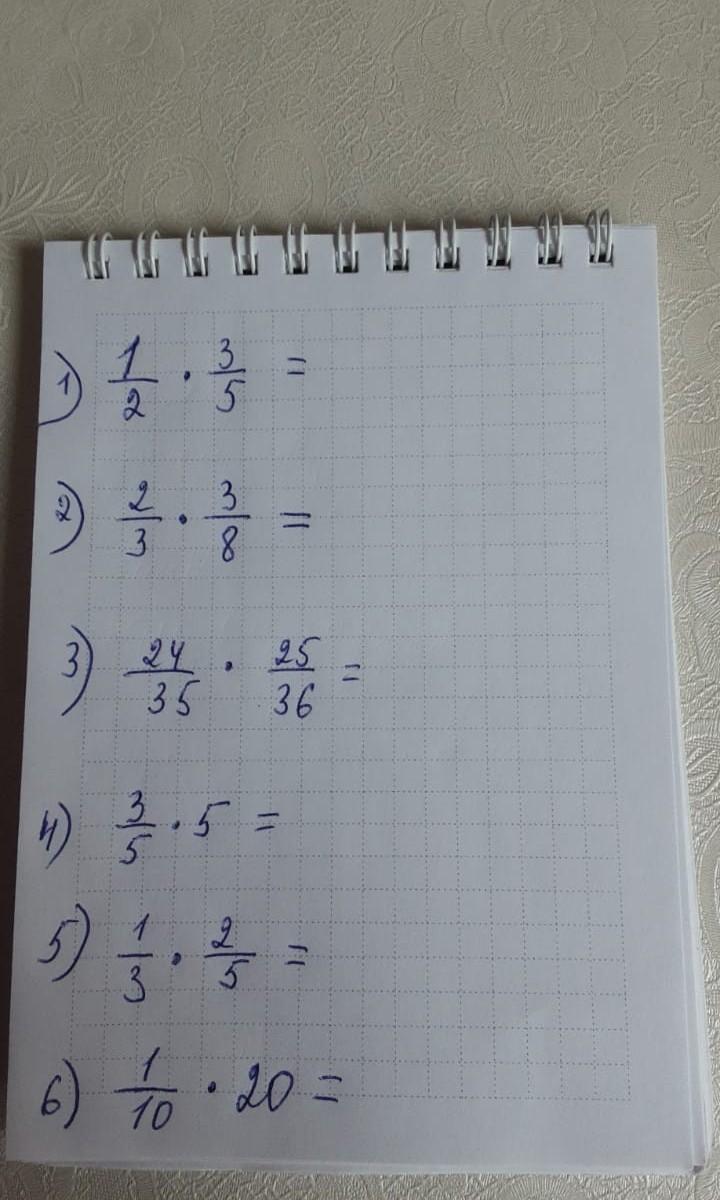 1) 1/2 · 3/5 =
2) 2/3 · 3/8 =
3) 24/35 · 25/36 =
4) 3/5 · 5 =
5) 1/3 · 2/5 =
6) 1/10 · 20 =